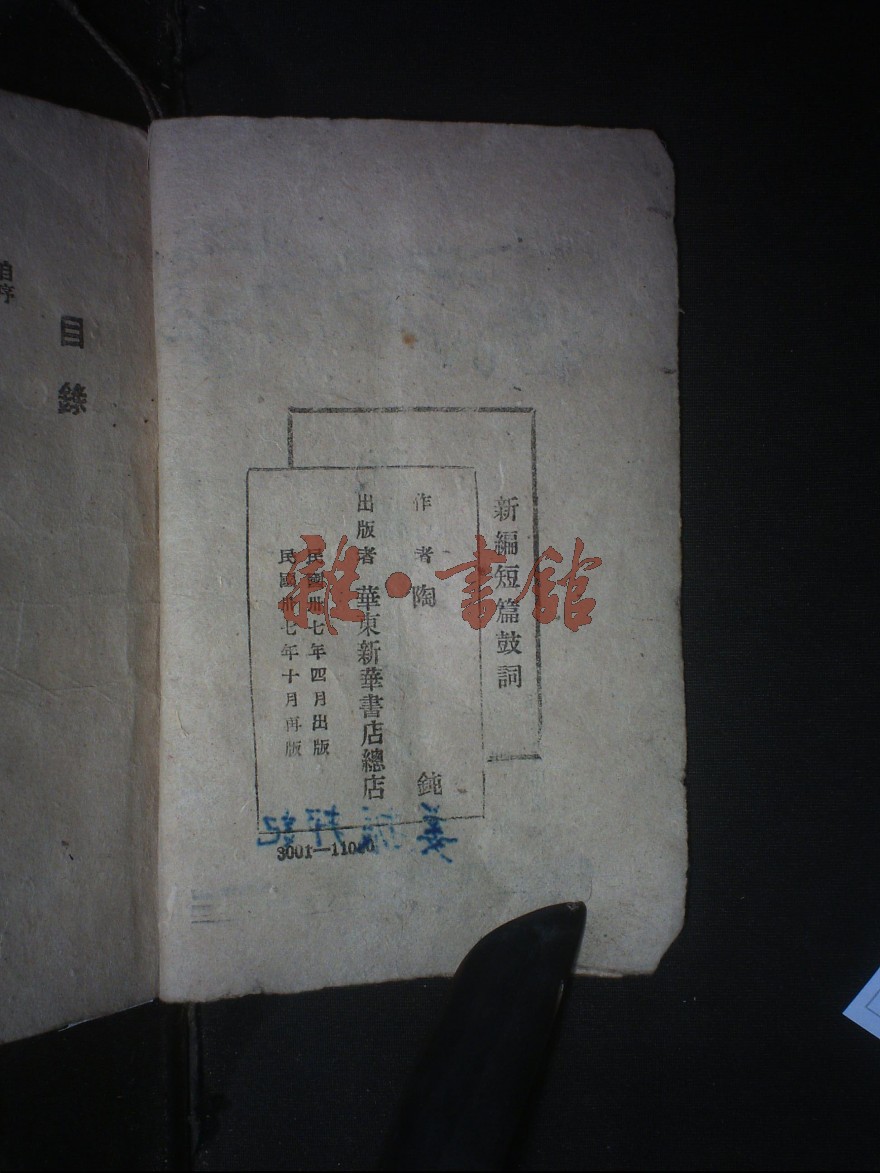 新編短篇鼓詞
作者陶鈍
出版者華東新華書店總店
民國卅七年四月出版
民國卅七年十月再版
3001—11000
雜·書館
目錄
自序